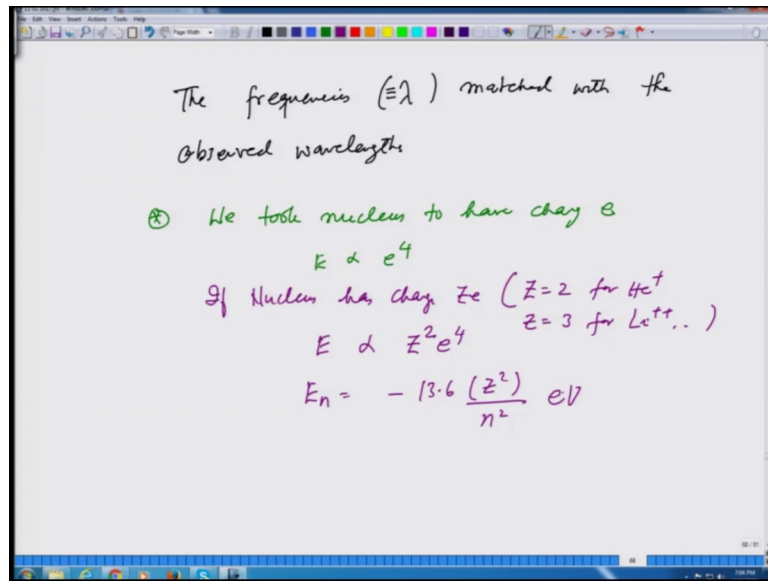 File Edit View Insert Actions Tools Help
Page Width
The frequencies (≡λ) matched with the
observed wavelengths
⊛ We took nucleus to have charg e
E ∝ e⁴
If Nucleus has charge Ze (Z=2 for He⁺
Z=3 for Li⁺⁺.. )
E ∝ Z²e⁴
Eₙ = - 13.6 (Z²)/n² eV
68
7:04 PM